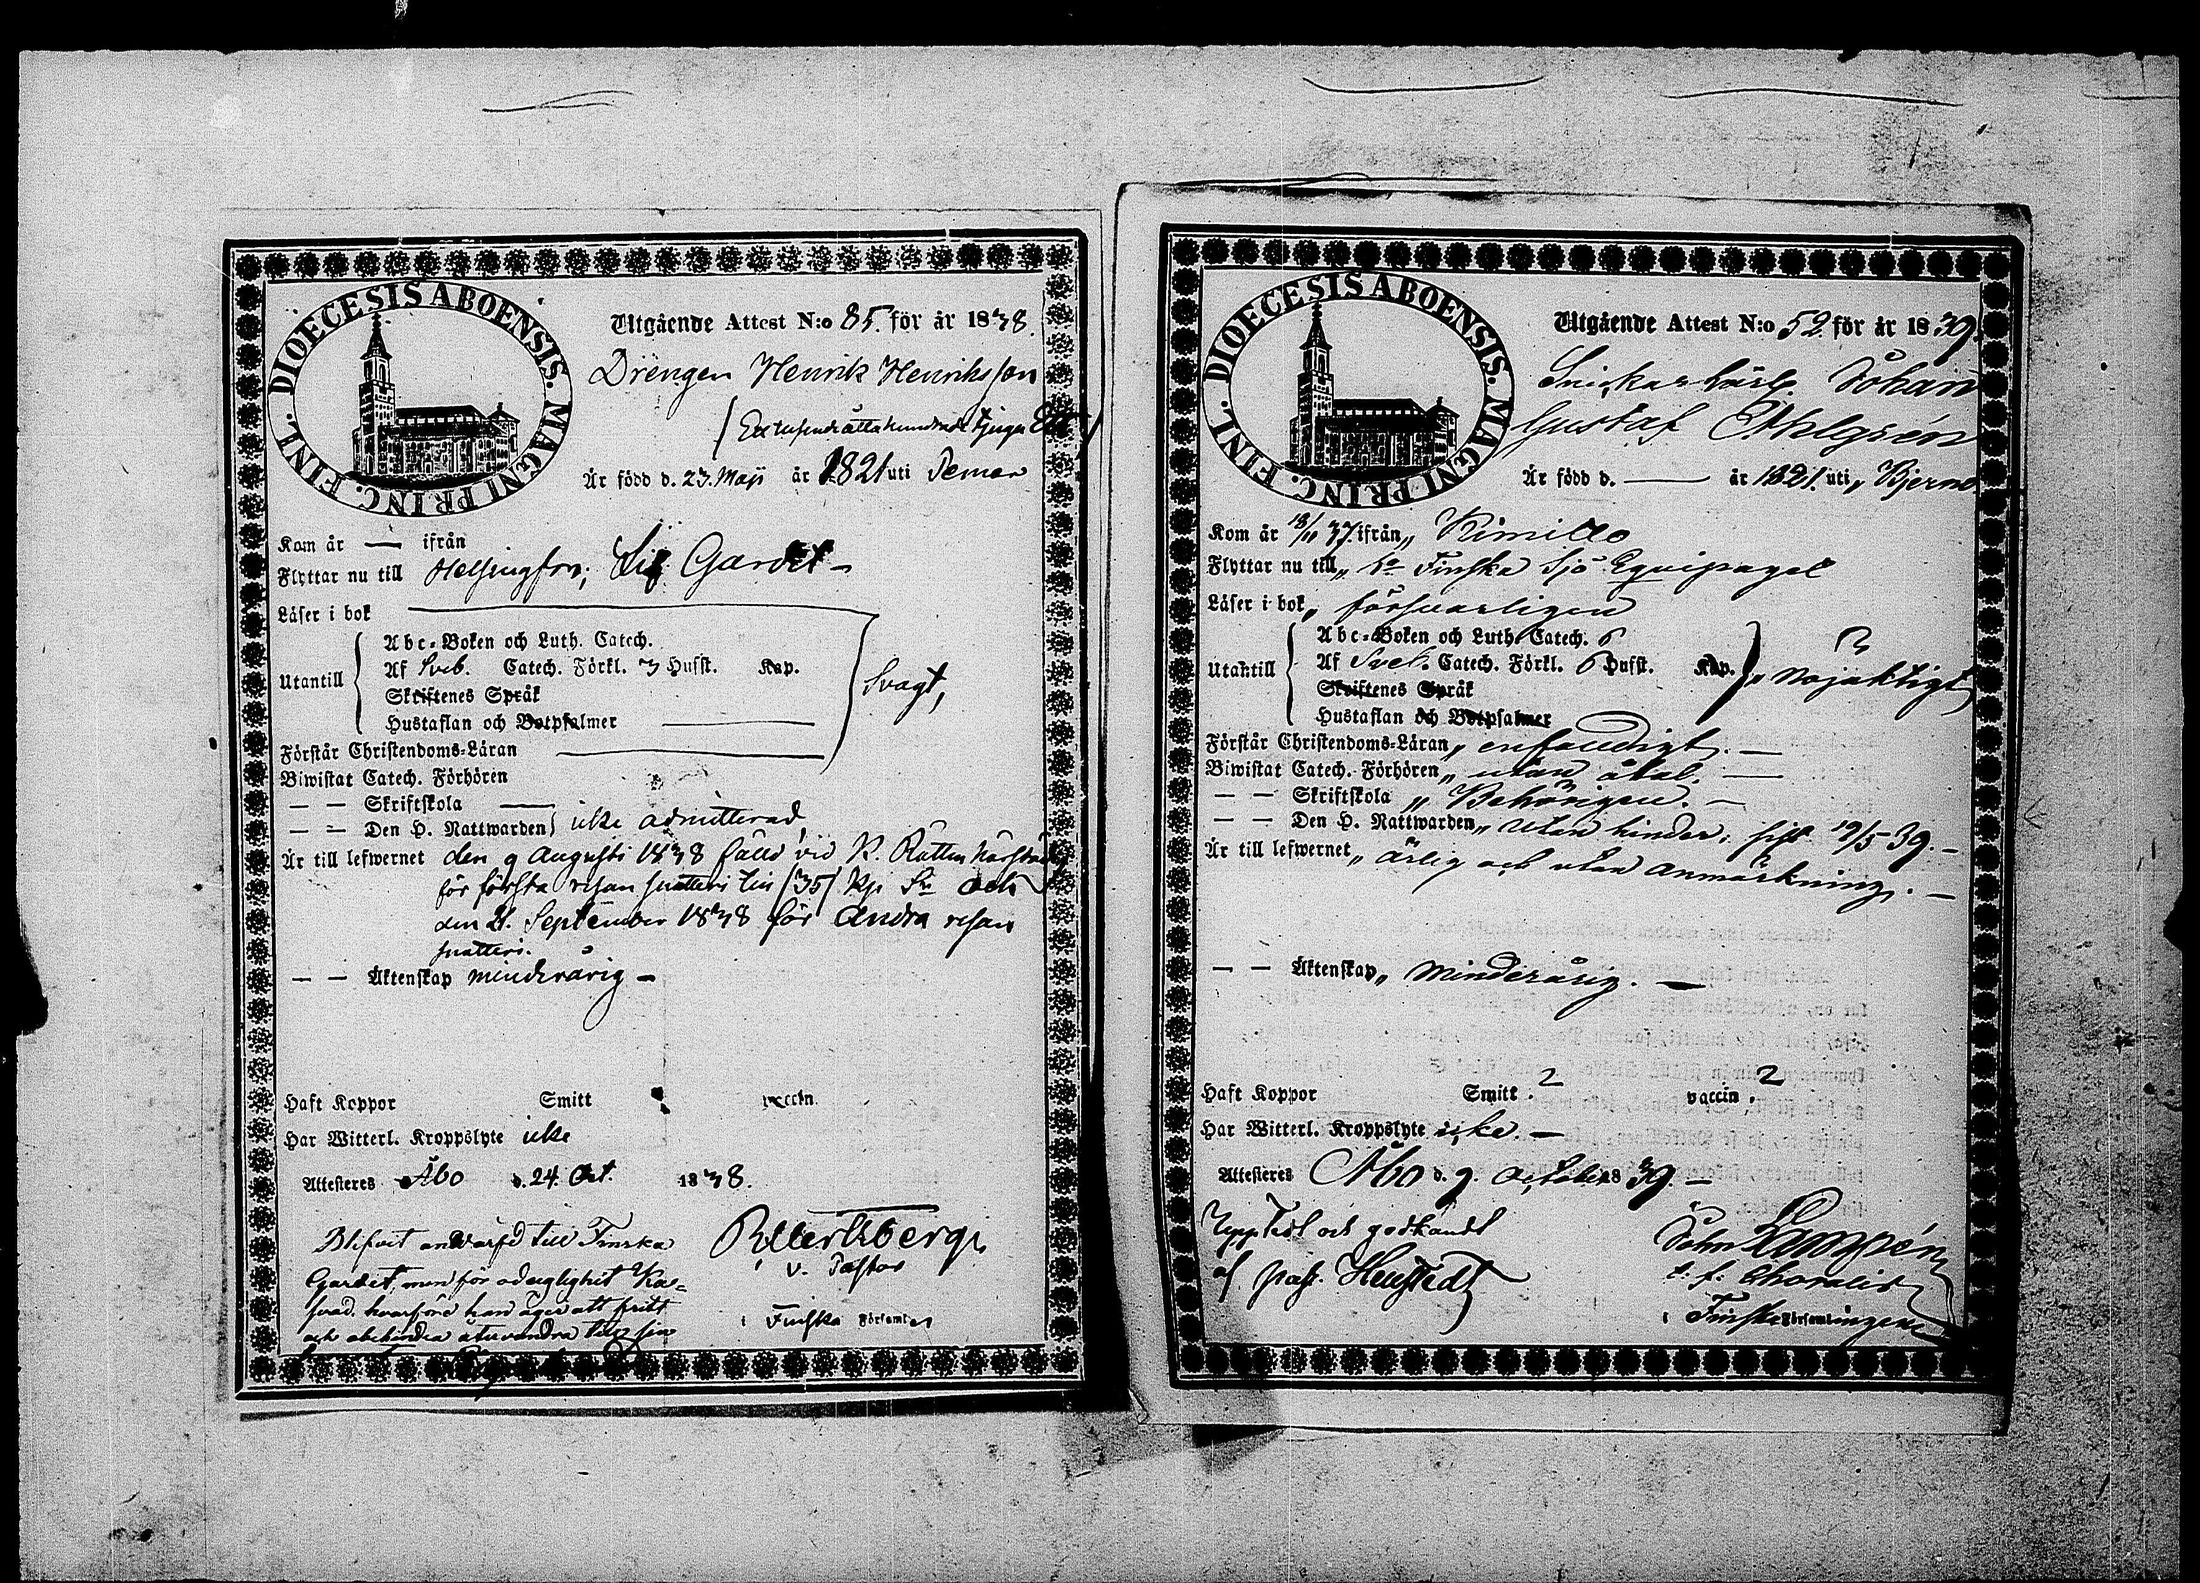 DIOECESIS ABOENSIS. MAGNI PRINC. FINL.
Utgående Attest N:o 85. för år 1838.
Drengen Henrik Henriksson
(Ett tusende åttahundrade tjugu Ett)
Är född d. 23. Maji år 1821 uti Pemar
Kom år — ifrån
Flyttar nu till Helsingfors, Lif Gardet —
Läser i bok
Utantill
Abc-Boken och Luth. Catech.
Af Sveb. Catech. Förkl. 3 Husst. Kap.
Skriftenes Språk
Hustaflan och Botpsalmer
Svagt,
Förstår Christendoms-Läran
Biwistat Catech. Förhören
— — Skriftskola —
— — Den H. Nattwarden icke admitterad
Är till lefwernet den 9 Augusti 1838 fälld vid K. Rätten härstädes
för första resan snatteri till /35/ kp Sr och
den 21. September 1838 för Andra resan
snatteri.
— — Äktenskap minderårig —
Haft Koppor Smitt vaccin.
Har Witterl. Kroppslyte icke
Attesteres Åbo d. 24. Oct. 1838.
Blifvit anvärfd till Finska
Gardet, men för oduglighet Kas-
serad, hvarföre han äger att fritt
och obehindra återvandra till sin
v. Pastor
i Finska Församl.
DIOECESIS ABOENSIS. MAGNI PRINC. FINL.
Utgående Attest N:o 52 för år 1839.
Snickarlärl. Johan
Gustaf Ahlgrén
Är född d. — år 1821. uti „ Bjerno
Kom år 13/11 37 ifrån „ Kimitto
Flyttar nu till „ 1a Finska Sjö Equipaget
Läser i bok „ försvarligen
Utantill
Abc-Boken och Luth. Catech. 6
Af Sveb. Catech. Förkl. 6 Husst. Kap.
Skriftenes Språk
Hustaflan och Botpsalmer
„ Nöjaktigt
Förstår Christendoms-Läran „ enfaldigt. —
Biwistat Catech. Förhören „ utan åtal. —
— — Skriftskola „ Behörigen. —
— — Den H. Nattwarden „ utan hinder; sist 19/5 39. —
Är till lefwernet „ ärlig och utan anmärkning. —
— — Äktenskap „ minderårig. —
Haft Koppor Smitt ? vaccin ?
Har Witterl. Kroppslyte icke. —
Attesteres Åbo d. 9. October 1839. —
Uppläst och godkändt
af past. Hengstedt
John Lampén
t. f. Choralist
i Finska Församlingen